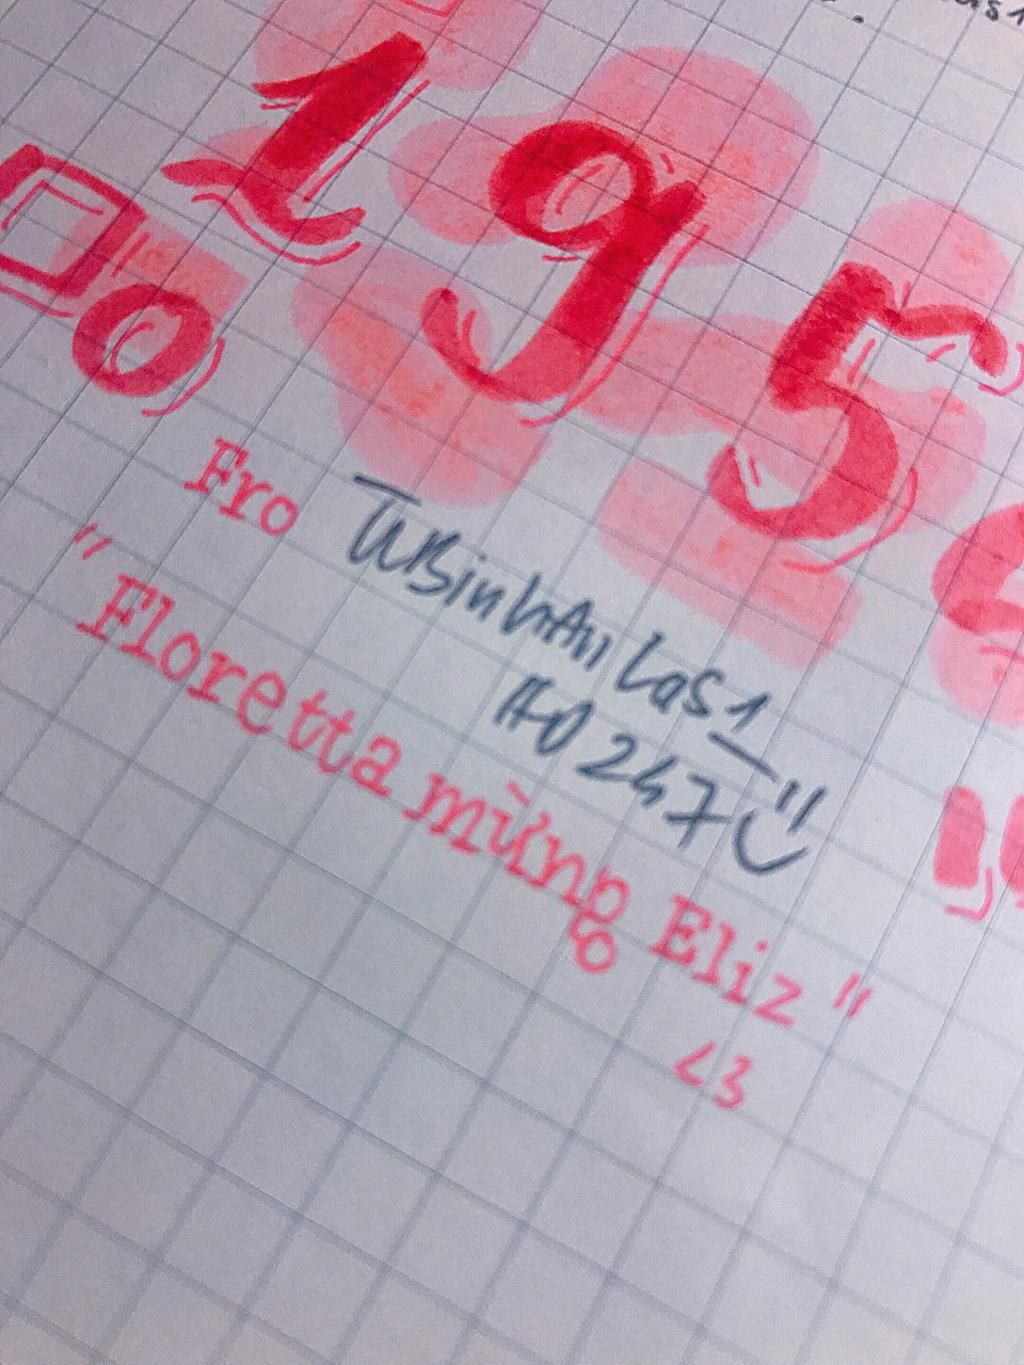 195
Fro
TUBinhAnlas1_
#0247
"Floretta mừng Eliz"
<3